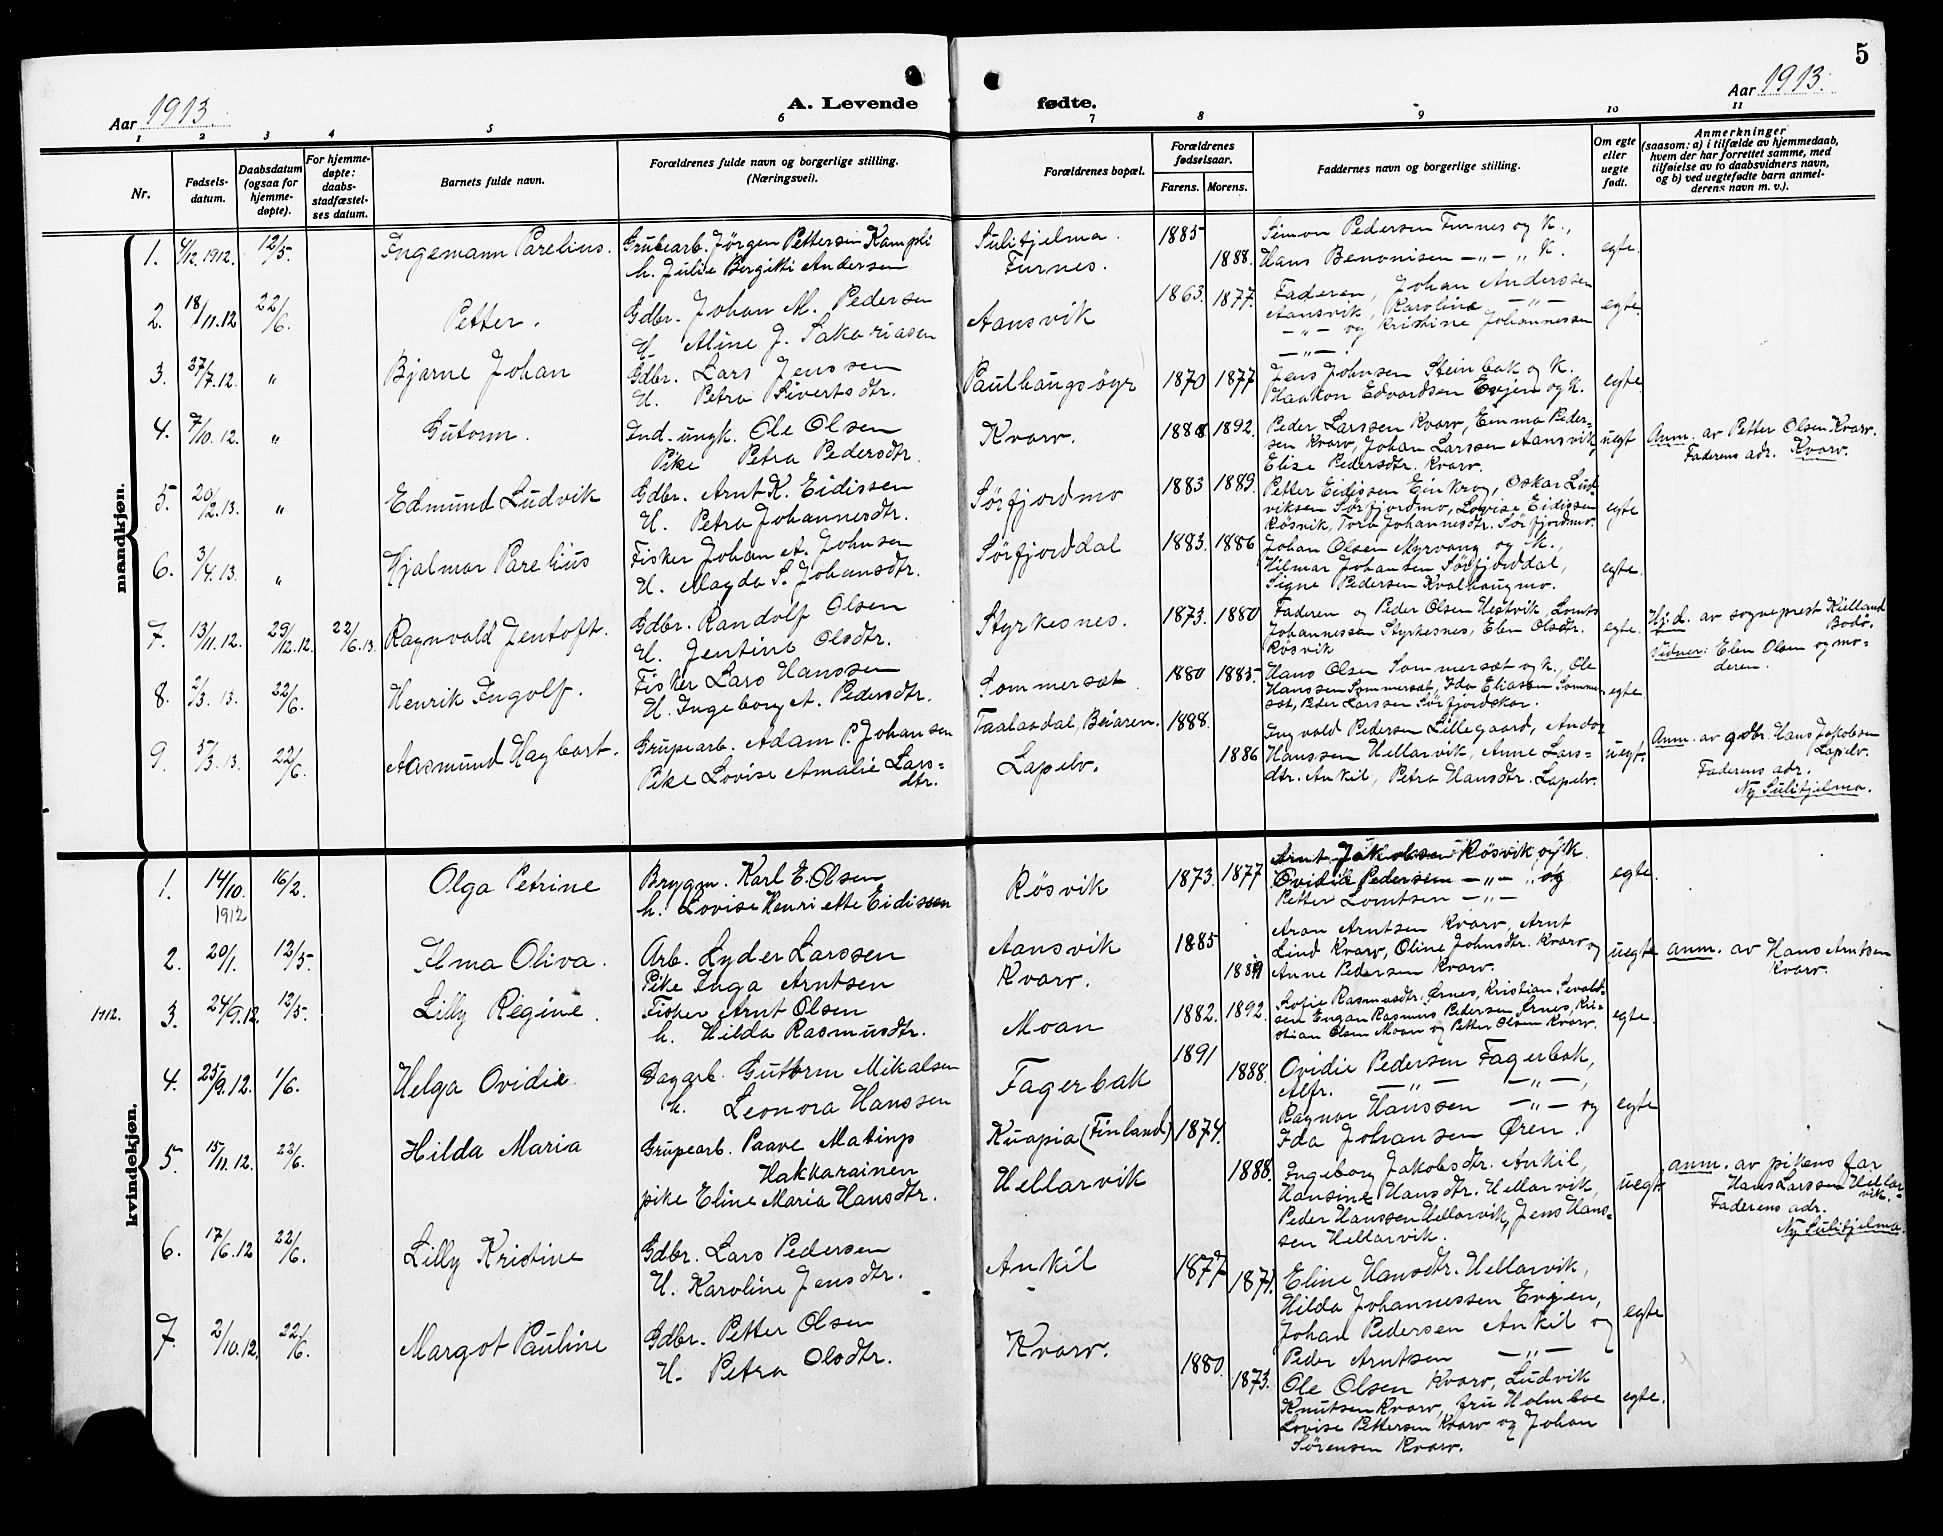 5
Aar 1913.
A. Levende fødte.
Aar 1913.
1 2 3 4 5 6 7 8 9 10 11
Nr.
Fødsels-
datum.
Daabsdatum
(ogsaa for
hjemme-
døpte).
For hjemme-
døpte:
daabs-
stadfæstel-
ses datum.
Barnets fulde navn.
Forældrenes fulde navn og borgerlige stilling.
(Næringsvei).
Forældrenes bopæl.
Forældrenes
fødselsaar.
Farens. Morens.
Faddernes navn og borgerlige stilling.
Om egte
eller
uegte
født.
Anmerkninger
(saasom: a) i tilfælde av hjemmedaab,
hvem der har forrettet samme, med
tilføielse av to daabsvidners navn,
og b) ved uegtefødte barn anmel-
derens navn m. v.).
mandkjøn.
1. 4/12.1912. 12/5. Ingemann Parelius.
Grubearb. Jörgen Pettersen Kampli
h. Julie Bergitti Andersen
Sulitjelma.
Furnes.
1885
1888.
Simon Pedersen Furnes og K.,
Hans Benonisen -„- „ K.
egte.
2. 18/11.12 22/6. Petter.
Gdbr. Johan M. Pedersen
H. Aline J. Sakariasen
Aansvik
1863. 1877.
Faderen, Johan Anderssen
Aansvik, Karoline -„-
-„- og Kristine Johannessen
-„-.
egte
3. 27/7.12. „ Bjarne Johan
Gdbr. Lars Jenssen
H. Petra Sivertsdtr.
Paulhaugsöyr
1870 1877
Jens Johnsen Steinbak og K.
Haakon Edvardsen Evjen og K.
egte.
4. 7/10.12. „ Gutorm.
Ind. ungk. Ole Olsen
Pike Petra Pedersdtr.
Kvarv.
1888 1892.
Peder Larssen Kvarv, Emma Peder-
sen Kvarv, Johan Larssen Aansvik,
Elise Pedersdtr. Kvarv.
uegt
Anm. av Petter Olsen Kvarv.
Faderens adr. Kvarv.
5. 20/2.13. „ Edmund Ludvik
Gdbr. Arnt K. Eidissen
H. Petra Johannesdtr.
Sörfjordmo
1883 1889.
Petter Eidissen Einkrog, Oskar Lud-
viksen Sörfjordmo, Lovise Eidissen
Rösvik, Tora Johannesdtr. Sörfjordmo.
egte
6. 3/4.13. „ Hjalmar Parelius
Fisker Johan A. Johnsen
H. Magda S. Johansdtr.
Sörfjorddal
1883. 1886
Johan Olsen Myrvang og K.,
Hilmar Johansen Sörfjorddal,
Signe Pedersen Kvalhaugmo.
egte.
7. 13/11.12. 29/12.12. 22/6.13. Ragnvald Jentoft.
Gdbr. Randolf Olsen
H. Jentine Olsdtr.
Styrkesnes.
1873. 1880
Faderen og Peder Olsen Hestvik, Lomts
Johannessen Styrkesnes, Elen Olsdtr.
Rösvik
egte.
Hj.d. av sogneprest Kielland
Bodö.
Vidner: Elen Olsen og mo-
deren.
8. 2/3.13. 22/6. Henrik Ingolf.
Fisker Lars Hanssen
H. Ingeborg A. Pedersdtr.
Sommersæt
1880 1885.
Hans Olsen Sommersæt og K., Ole
Hanssen Sommersæt, Ida Eliassen Sommer-
sæt, Peder Larssen Sörfjordskar.
egte.
9. 5/3.13. 22/6. Aasmund Hagbart.
Grupearb. Adam P. Johansen
Pike Lovise Amalie Lars=
dtr.
Taalaadal, Beiaren.
Lapelv.
1888.
1886
Ingvald Pedersen Lillegaard, Andor
Hanssen Hellarvik, Anne Lars-
dtr. Ankil, Petra Hansdtr. Lapelv.
uegt.
Anm. av gdbr. Hans Jakobsen
Lapelv.
Faderens adr.
Ny Sulitjelma.
kvindekjøn.
1. 14/10. 1912 16/2. Olga Petrine
Brygm. Karl E. Olsen
h. Lovise Henriette Eidissen
Rösvik
1873. 1877
Arnt Jakobsen Rösvik og K.
Ovidie Pedersen -„- „ og
Petter Lomtsen -„-
egte.
2. 20/1. 12/5. Ilma Oliva.
Arb. Lyder Larssen
Pike Inga Arntsen
Aansvik
Kvarv.
1885
Aron Arntsen Kvarv, Arnt
Lind Kvarv, Oline Johnsdtr. Kvarv og
Anne Pedersen Kvarv.
uegte
anm. av Hans Arntsen
Kvarv.
1912. 3. 24/9.12. 12/5. Lilly Regine.
Fisker Arnt Olsen
h. Hilda Rasmusdtr.
Moan
1882. 1892.
Sofie Rasmusdtr. Ørnes, Kristian Sevald-
sen Engan, Rasmus Pedersen Ørnes, Kri-
stian Olsen Moan og Petter Olsen Kvarv.
egte.
4. 25/9.12. 1/6. Helga Ovidie.
Dagarb. Guttorm Mikalsen
h. Leonora Hanssen
Fagerbak
1891
1888.
Ovidie Pedersen Fagerbak,
Alfr. -„- -„-,
Ragna Hanssen -„- og
Ida Johansen Øren.
egte
5. 15/11.12. 22/6. Hilda Maria
Grupearb. Paave Matinp
Hakkarainen
pike Eline Maria Hansdtr.
Kuapia (Finland)
Hellarvik
1874.
1888.
Ingeborg Jakobsdtr. Ankil,
Hansine Hansdtr. Hellarvik,
Peder Hanssen Hellarvik, Jens Hans-
sen Hellarvik.
uegt.
anm. av pikens far
Hans Larssen Hellar-
vik.
Faderens adr.
Ny Sulitjelma.
6. 17/6.12 22/6. Lilly Kristine
Gdbr. Lars Pedersen
H. Karoline Jensdtr.
Ankil
1877
1871.
Eline Hansdtr. Hellarvik,
Hilda Johannessen Evjen,
Johan Pedersen Ankil og
Peder Arntsen -„-
egte
7. 2/10.12. 22/6. Margot Pauline
Gdbr. Petter Olsen
H. Petra Olsdtr.
Kvarv.
1880.
1873.
Ole Olsen Kvarv, Ludvik
Knutsen Kvarv, fru Holmboe
Lovise Pettersen Kvarv og Johan
Sörensen Kvarv.
egte.